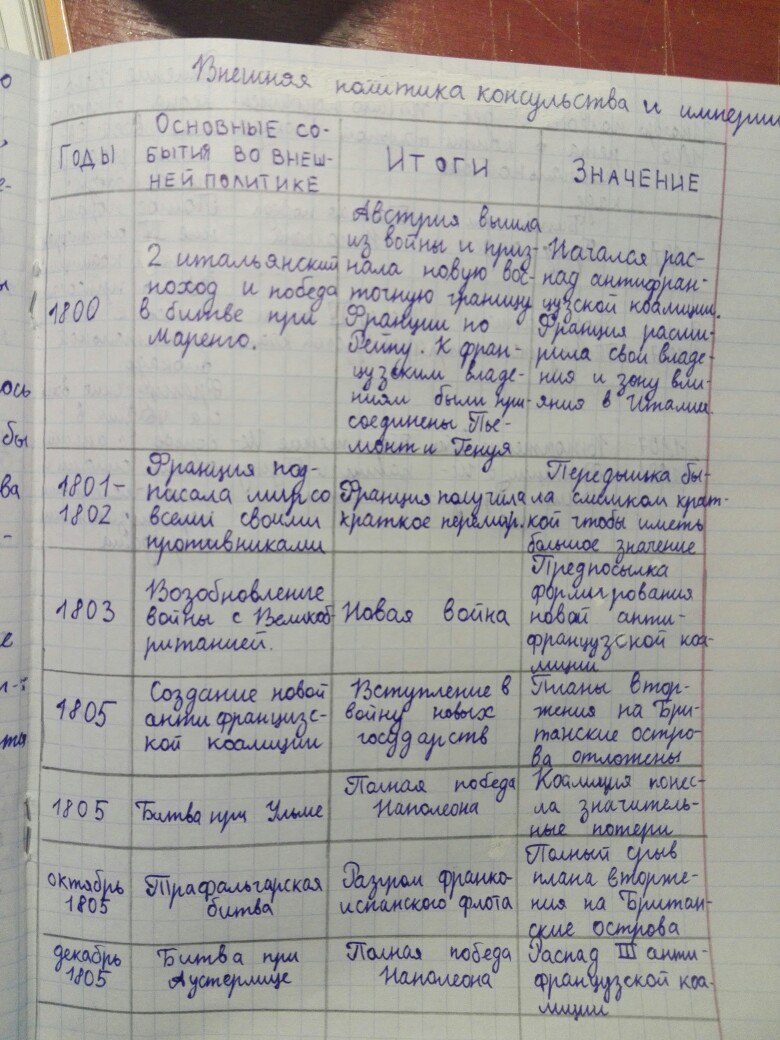 Внешняя политика консульства и империи
ГОДЫ
ОСНОВНЫЕ СО-
БЫТИЯ ВО ВНЕШ-
НЕЙ ПОЛИТИКЕ
ИТОГИ
ЗНАЧЕНИЕ
1800
2 итальянский
поход и победа
в битве при
Маренго.
Австрия вышла
из войны и приз-
нала новую вос-
точную границу
Франции по
Рейну. К фран-
цузским владе-
ниям были при-
соединены Пье-
монт и Генуя
Начался рас-
пад антифран-
цузской коалиции.
Франция расши-
рила свои владе-
ния и зону вли-
яния в Италии.
1801-
1802
Франция под-
писала мир со
всеми своими
противниками
Франция получила
краткое перемир.
Передышка бы-
ла слишком крат-
кой чтобы иметь
большое значение
1803
Возобновление
войны с Великоб-
ританией.
Новая война
Предпосылка
формирования
новой анти-
французской коа-
лиции
1805
Создание новой
антифранцизс-
кой коалиции
Вступление в
войну новых
государств
Планы втор-
жения на Бри-
танские остро-
ва отложены
1805
Битва при Ульме
Полная победа
Наполеона
Коалиция понес-
ла значитель-
ные потери
октябрь
1805
Трафальгарская
битва
Разгром франко-
испанского флота
Полный срыв
плана вторже-
ния на Британ-
ские острова
декабрь
1805
Битва при
Аустерлице
Полная победа
Наполеона
Распад III анти-
французской коа-
лиции
ось
бы
ва